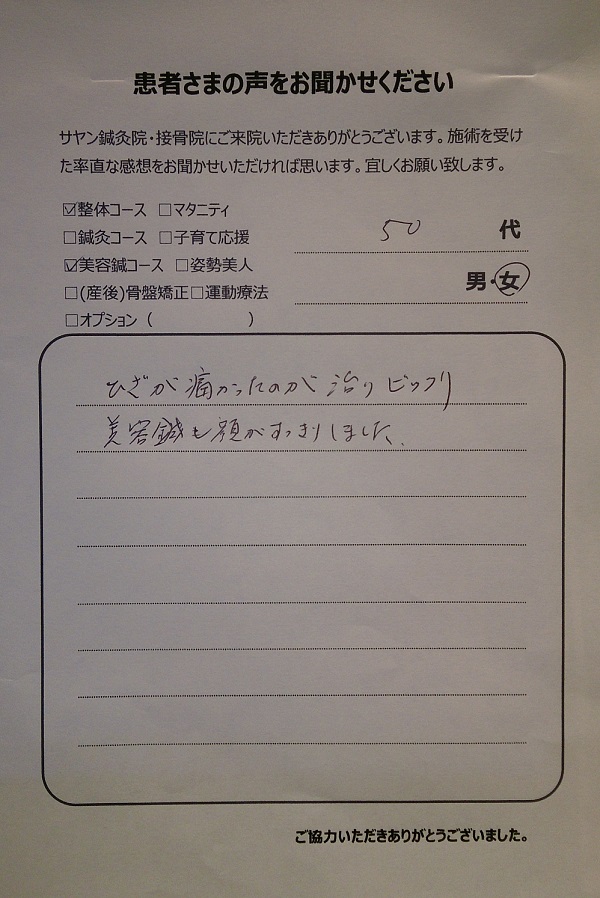 患者さまの声をお聞かせください
サヤン鍼灸院・接骨院にご来院いただきありがとうございます。施術を受け
た率直な感想をお聞かせいただければ思います。宜しくお願い致します。
☑整体コース □マタニティ
□鍼灸コース □子育て応援
☑美容鍼コース □姿勢美人
□(産後)骨盤矯正□運動療法
□オプション ( )
50 代
男・女
ひざが痛かったのが治りビックリ
美容鍼も顔がすっきりしました。
ご協力いただきありがとうございました。